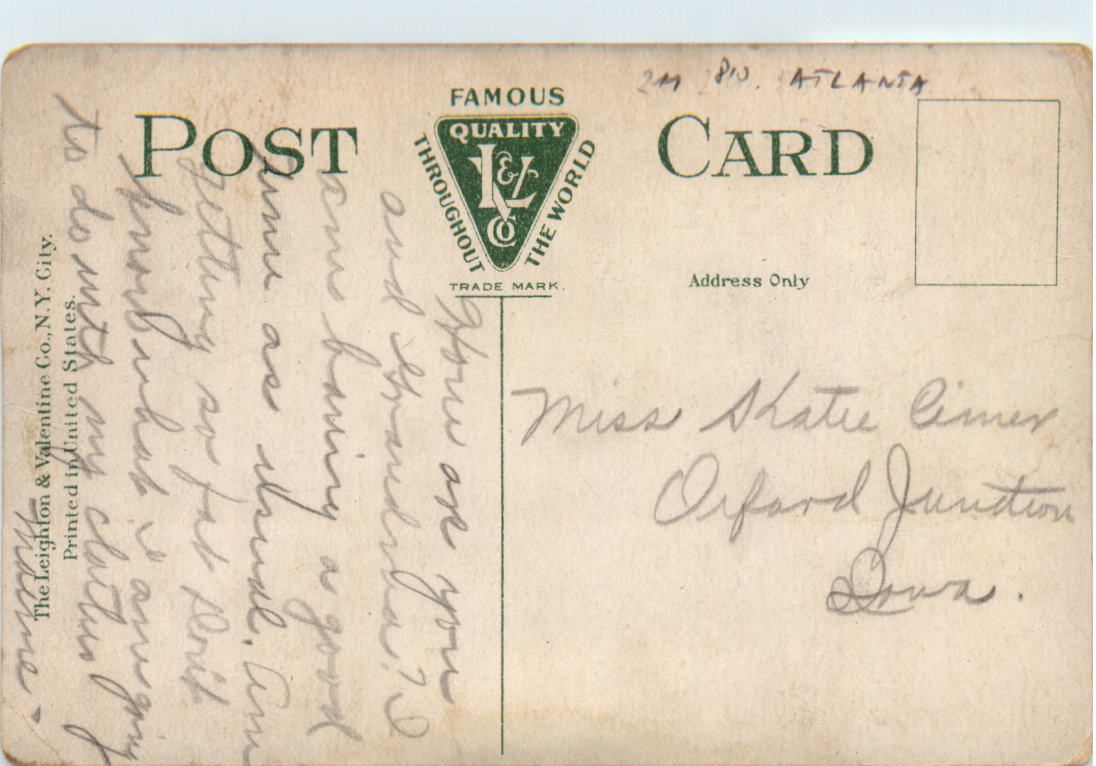 ATLANTA
POST CARD
FAMOUS
QUALITY
THROUGHOUT THE WORLD
L&V
Co
TRADE MARK.
Address Only
Miss Katie
Oxford Junction
Iowa.
How are you
and Grandma? I
am having a good
time as usual. Am
getting so fat don't
know what I am going
to do with my clothes
Mame
The Leighton & Valentine Co., N.Y. City.
Printed in United States.